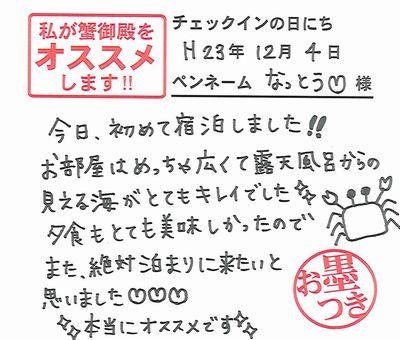 私が蟹御殿を
オススメ
します!!
チェックインの日にち
H 23年 12月 4日
ペンネーム なっとう 様
今日、初めて宿泊しました!!
お部屋はめっちゃ広くて露天風呂からの
見える海がとてもキレイでした
夕食もとても美味しかったので
また、絶対泊まりに来たいと
思いました♡♡♡
本当にオススメです
お墨つき